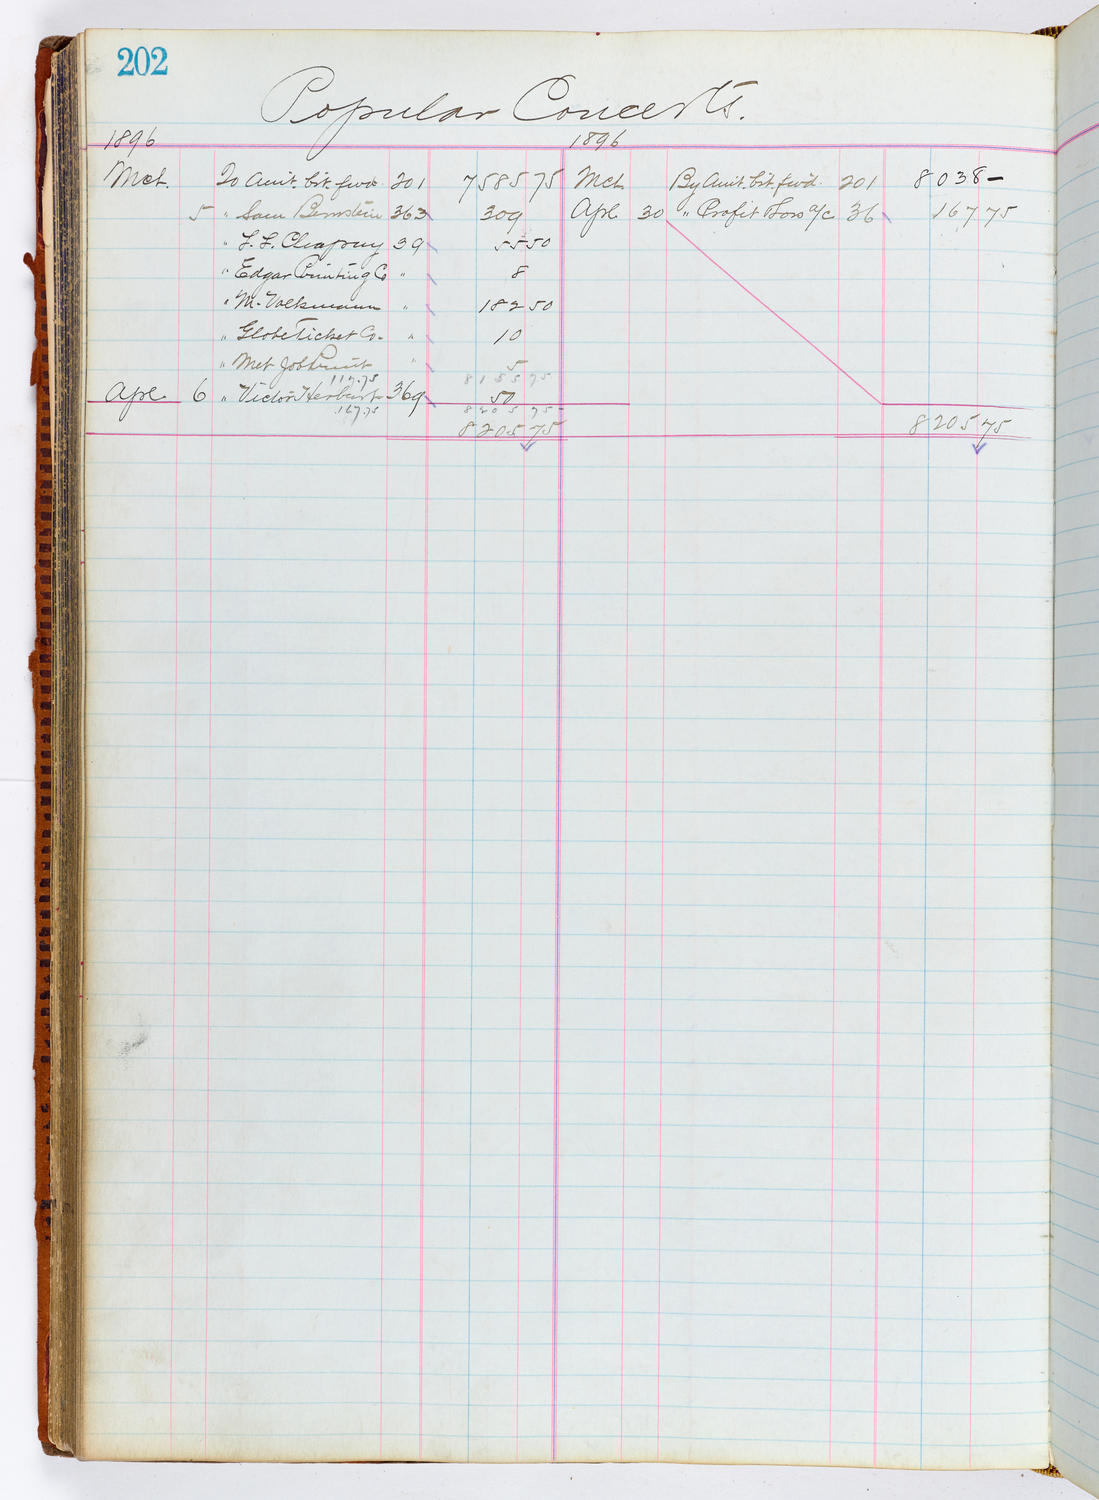 202
Popular Concerts.
1896 1896
Mch. To Amt. bt. fwd. 201 7585 75 Mch By Amt. bt. fwd. 201 8038 –
5 " Sam Bernstein 363 309 Apl 30 " Profit & Loss a/c 36 167 75
" 39 55 50
" Edgar Printing Co " 8
" M. Volkmann " 182 50
" Globe Ticket Co. " 10
" Met Job Print " 5
117.75 8155 75
Apl. 6 " Victor Herbert 369 50
167.75 8205 75 –
8205 75 8205 75